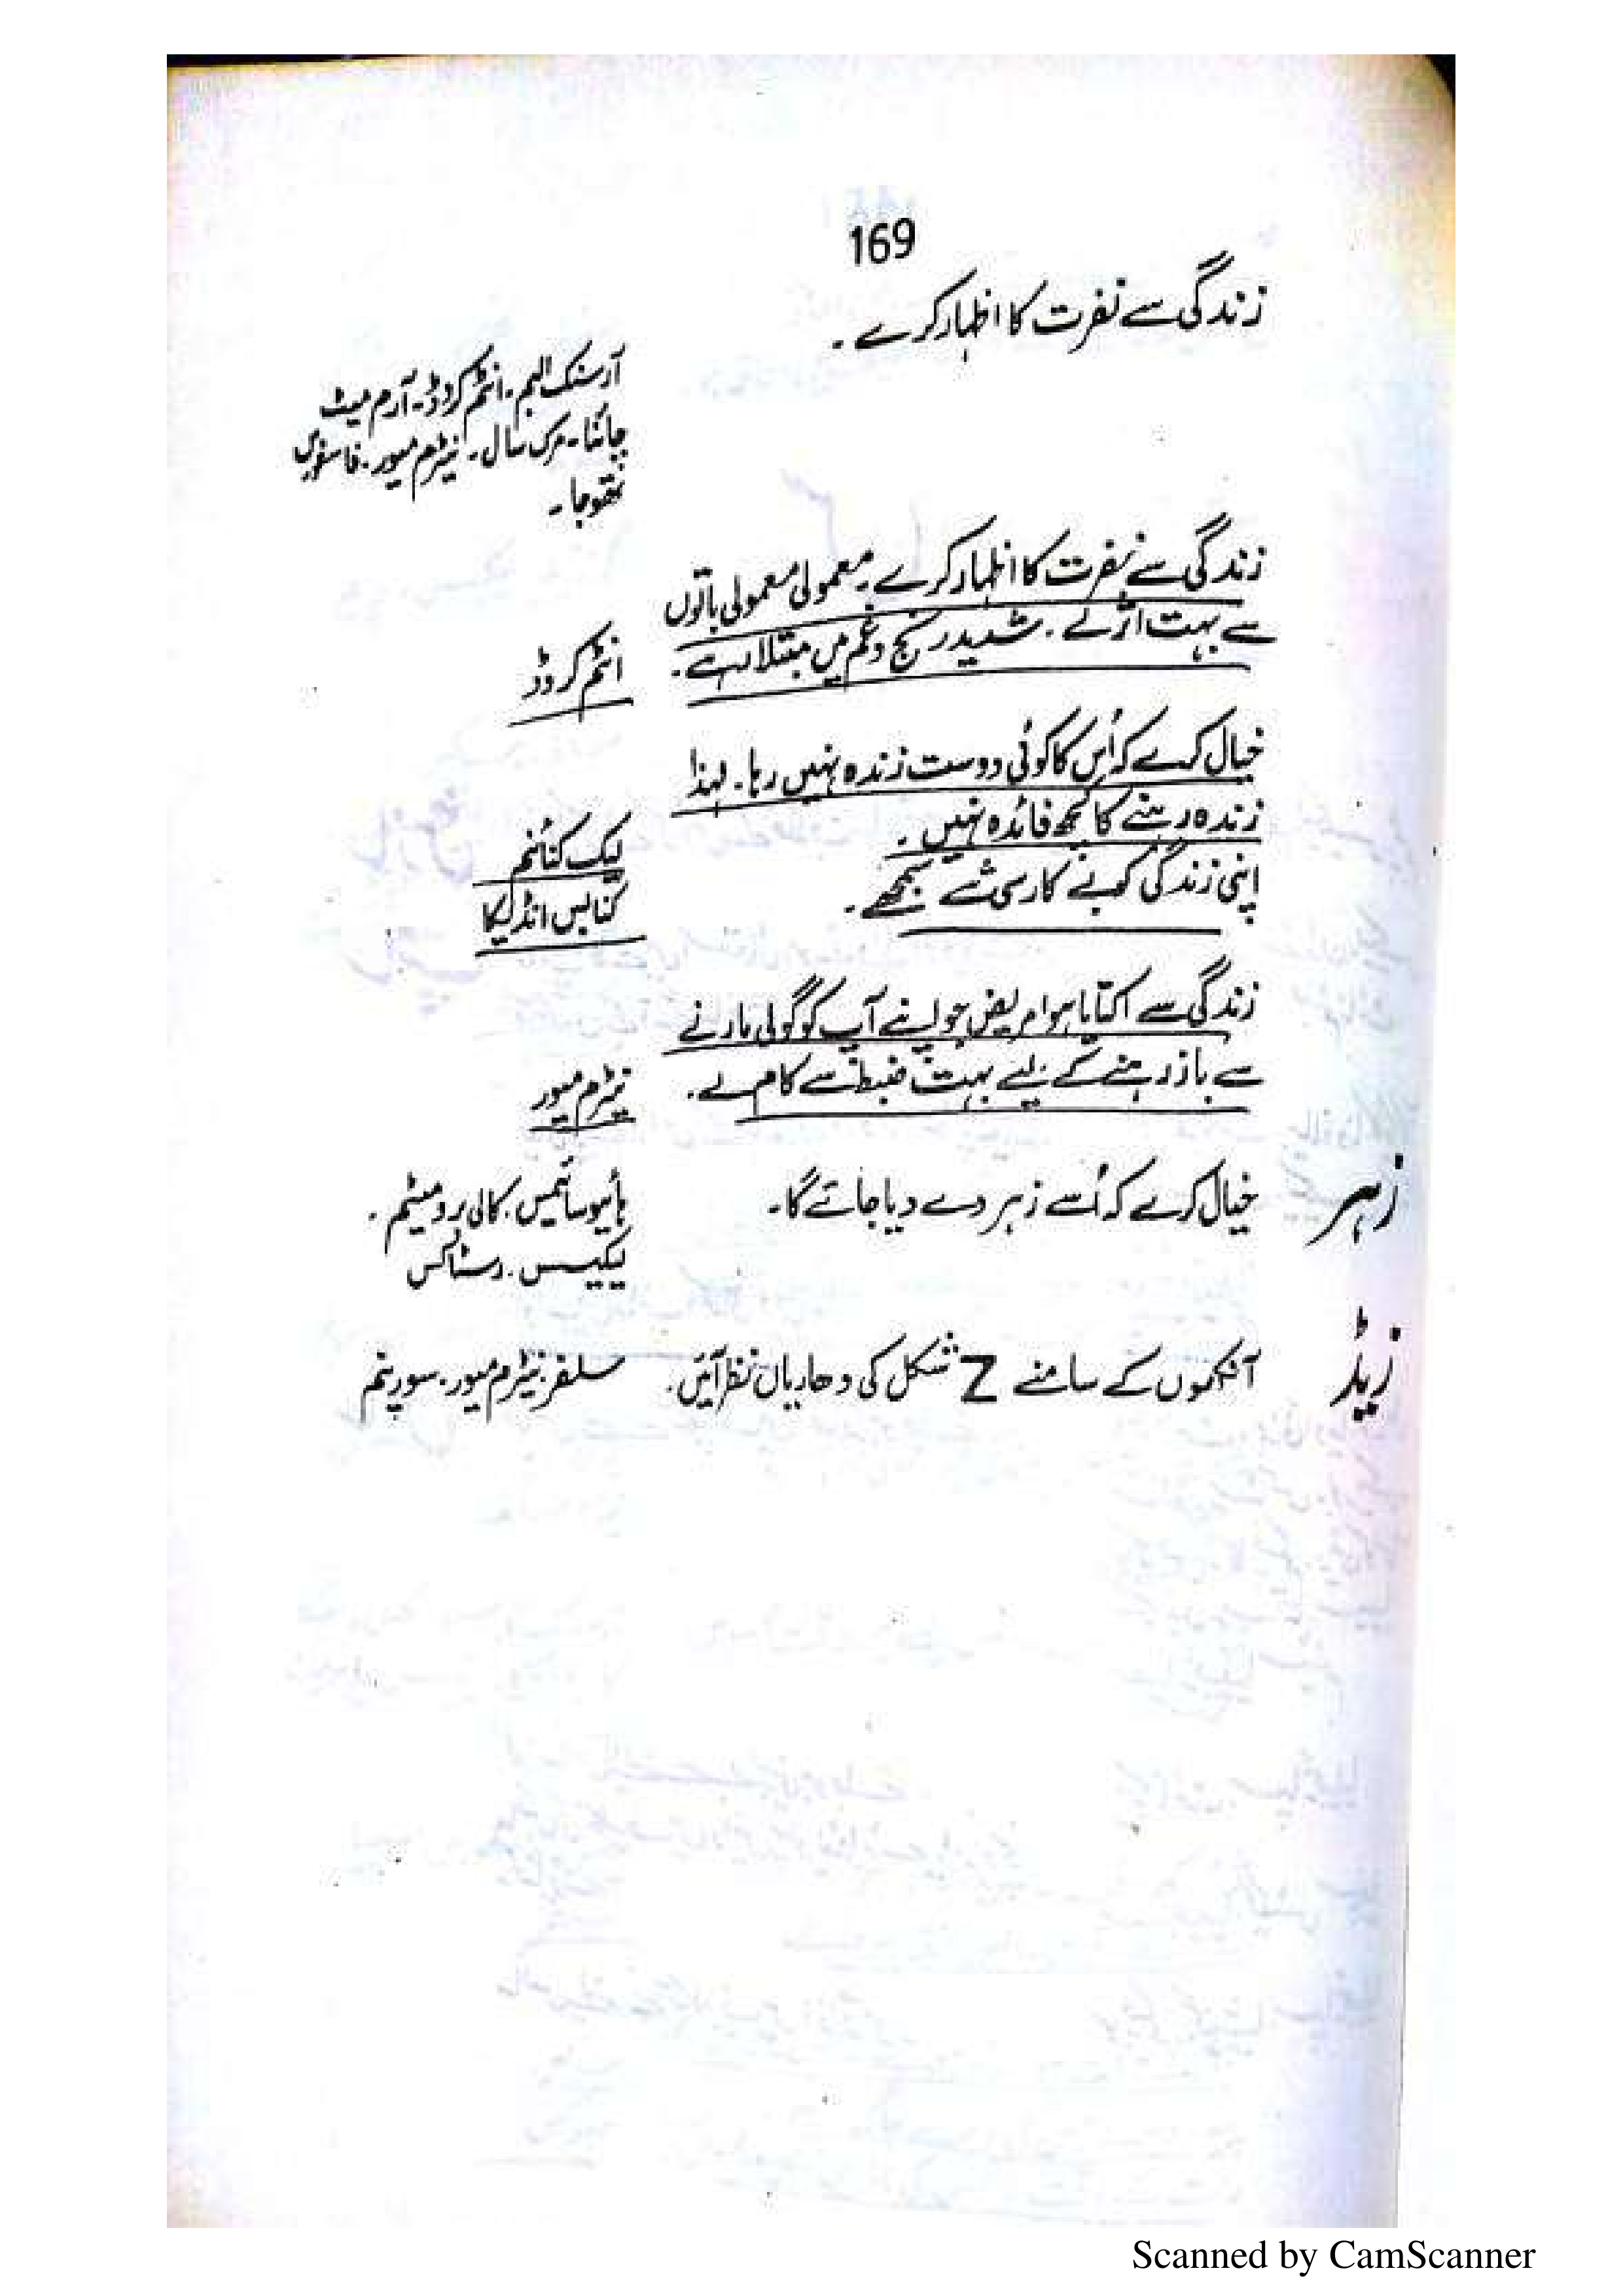 169
زندگی سے نفرت کا اظہار کرے ۔
آرسنک البم ۔ انٹم کروڈ ۔ آرم میٹ
چائنا ۔ مرک سال ۔ نیٹرم میور ۔ فاسفورس
تھوجا ۔
زندگی سے نفرت کا اظہار کرے ۔ معمولی معمولی باتوں
سے بہت اثر لے ۔ شدید رنج و غم میں مبتلا رہے ۔
انٹم کروڈ
خیال کرے کہ اُس کا کوئی دوست زندہ نہیں رہا ۔ لہذا
زندہ رہنے کا کچھ فائدہ نہیں ۔
لیک کنائنم
اپنی زندگی کو بے کار سی شے سمجھے ۔
کنابس انڈیکا
زندگی سے اکتایا ہوا مریض جو اپنے آپ کو گولی مارنے
سے باز رہنے کے لیے بہت ضبط سے کام لے ۔
نیٹرم میور
زہر
خیال کرے کہ اُسے زہر دے دیا جائے گا ۔
ہائیوسائمس ۔ کالی برومیٹم ۔
لیکیسس ۔ رسٹاکس
زیڈ
آنکھوں کے سامنے Z شکل کی دھاریاں نظر آئیں ۔
سلفر ۔ نیٹرم میور ۔ سورینم
Scanned by CamScanner